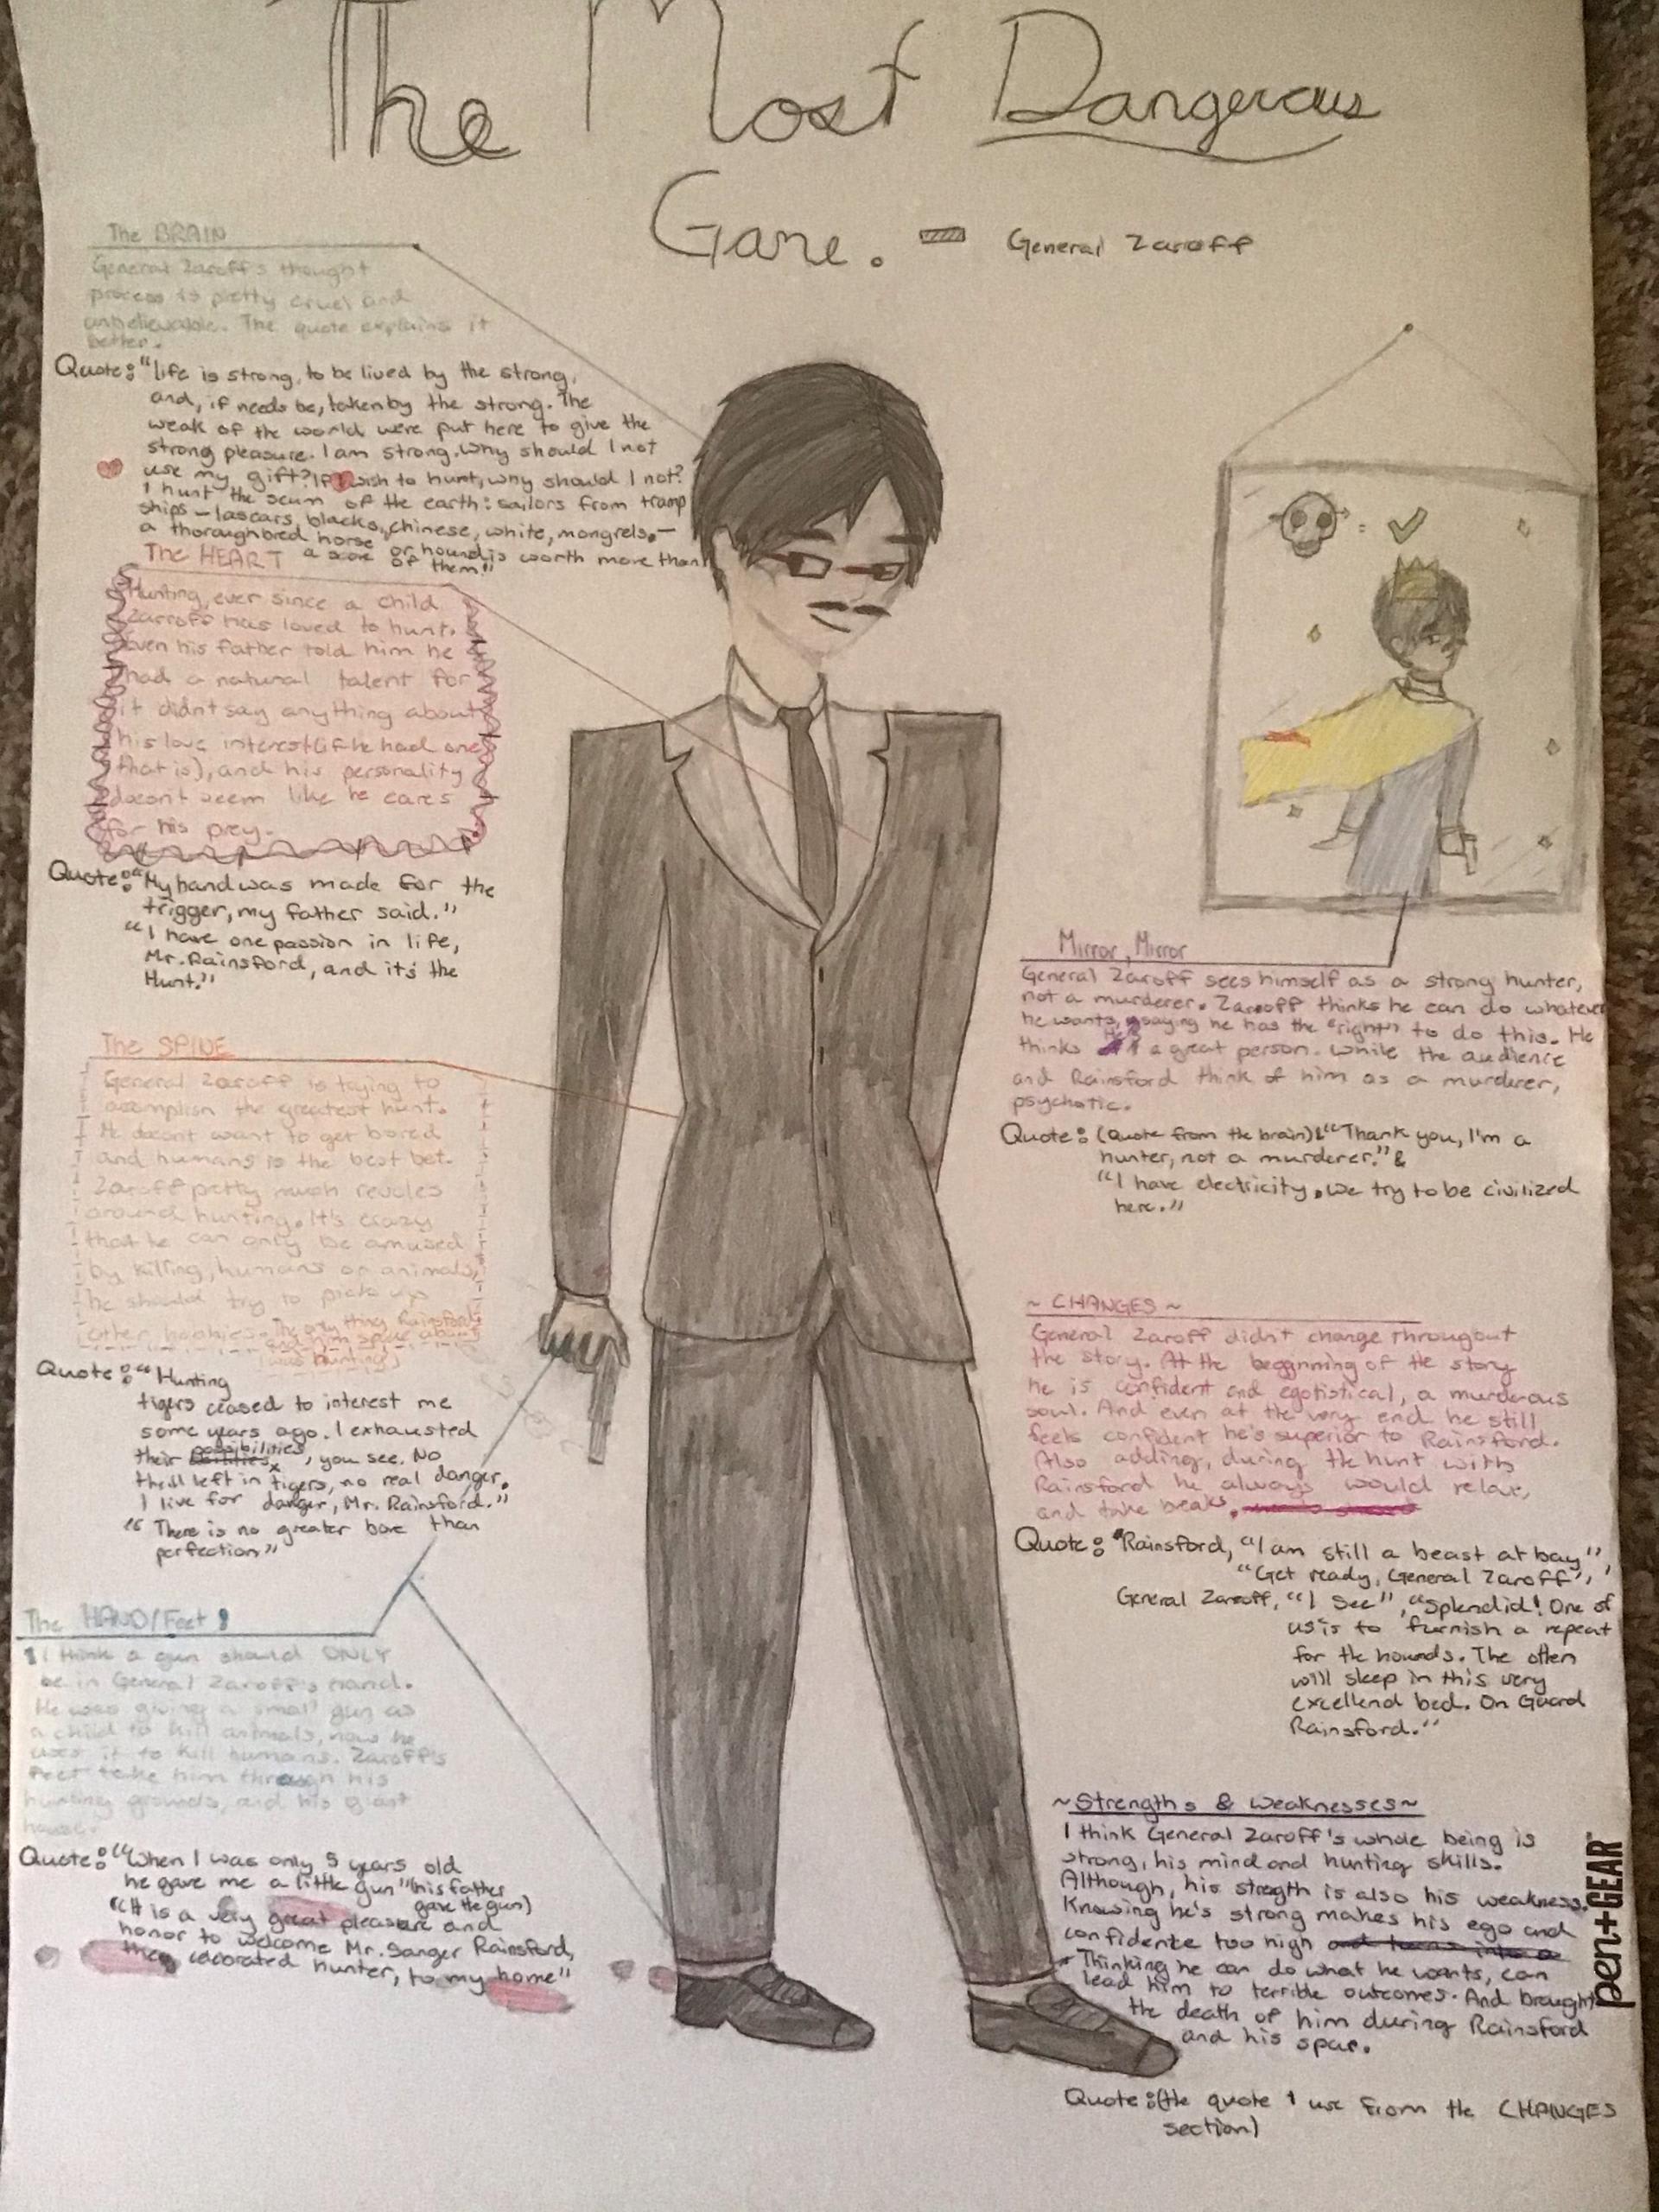 The Most Dangerous
Game. - General Zaroff
The BRAIN
General Zaroff's thought
process is pretty cruel and
unbelievable. The quote explains it
better.
Quote: "life is strong, to be lived by the strong,
and, if needs be, taken by the strong. The
weak of the world were put here to give the
strong pleasure. I am strong. Why should I not
use my gift? If I wish to hunt, why should I not?
I hunt the scum of the earth: sailors from tramp
ships - lascars, blacks, chinese, white, mongrels, -
a thoroughbred horse or hound is worth more than
a score of them."
The HEART
Hunting, ever since a child
Zarroff has loved to hunt.
Even his father told him he
had a natural talent for
it didnt say anything about
his love interest (if he had one
that is), and his personality
doesn't seem like he cares
for his prey.
Quote: "My hand was made for the
trigger, my father said."
"I have one passion in life,
Mr. Rainsford, and it's the
Hunt."
The SPINE
General Zaroff is trying to
accomplish the greatest hunt.
He doesn't want to get bored
and humans is the best bet.
Zaroff pretty much revoles
around hunting. It's crazy
that he can only be amused
by killing, humans or animals,
he should try to pick up
other hobbies. The only thing Rainsford
and him spoke about
(was hunting)
Quote: "Hunting
tigers ceased to interest me
some years ago. I exhausted
their possibilities, you see. No
thrill left in tigers, no real danger.
I live for danger, Mr. Rainsford."
"There is no greater bore than
perfection"
The HAND/Feet
I think a gun should ONLY
be in General Zaroff's hand.
He was giving a small gun as
a child to kill animals, now he
uses it to kill humans. Zaroff's
feet take him through his
hunting grounds, and his giant
house.
Quote: "When I was only 5 years old
he gave me a little gun" (his father
gave the gun)
"It is a very great pleasure and
honor to welcome Mr. Sanger Rainsford,
the cecorated hunter, to my home"
Mirror, Mirror
General Zaroff sees himself as a strong hunter,
not a murderer. Zaroff thinks he can do whatever
he wants, saying he has the "right" to do this. He
thinks a great person. While the audience
and Rainsford think of him as a murderer,
psychotic.
Quote: (Quote from the brain) & "Thank you, I'm a
hunter, not a murderer." &
"I have electricity. We try to be civilized
here."
~ CHANGES ~
General Zaroff didn't change througout
the story. At the beggnning of the story
he is confident and egotistical, a murderous
soul. And even at the very end he still
feels confident he's superior to Rainsford.
Also adding, during the hunt with
Rainsford he always would relax,
and take beaks.
Quote: "Rainsford, "I am still a beast at bay",
"Get ready, General Zaroff",
General Zaroff, "I See", "Splendid! One of
us is to furnish a repeat
for the hounds. The often
will sleep in this very
excellend bed. On Guard
Rainsford."
~Strengths & Weaknesses~
I think General Zaroff's whole being is
strong, his mind and hunting skills.
Although, his stregth is also his weakness.
Knowing he's strong makes his ego and
confidence too high
Thinking he can do what he wants, can
lead him to terrible outcomes. And brought
the death of him during Rainsford
and his spar.
Quote: (the quote I use from the CHANGES
section)
pen+GEAR